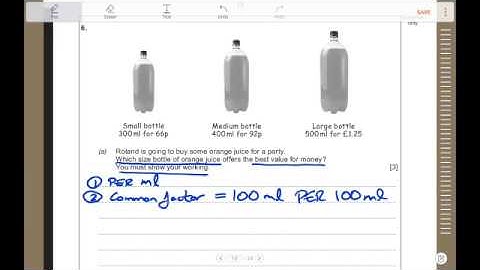 Pen
Eraser
Text
Undo
Redo
SAVE
only
6.
Small bottle
300ml for 66p
Medium bottle
400ml for 92p
Large bottle
500ml for £1.25
(a) Roland is going to buy some orange juice for a party.
Which size bottle of orange juice offers the best value for money?
You must show your working. [3]
① PER ml
② Common factor = 100 ml PER 100 ml